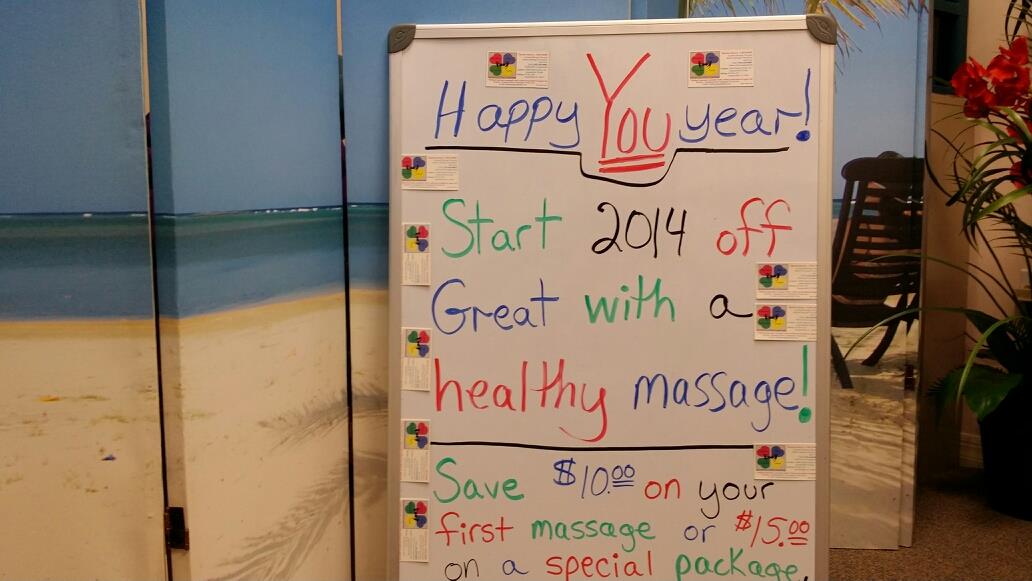 Happy You year!
Start 2014 off
Great with a
healthy massage!
Save $10.00 on your
first massage or $15.00
on a special package.